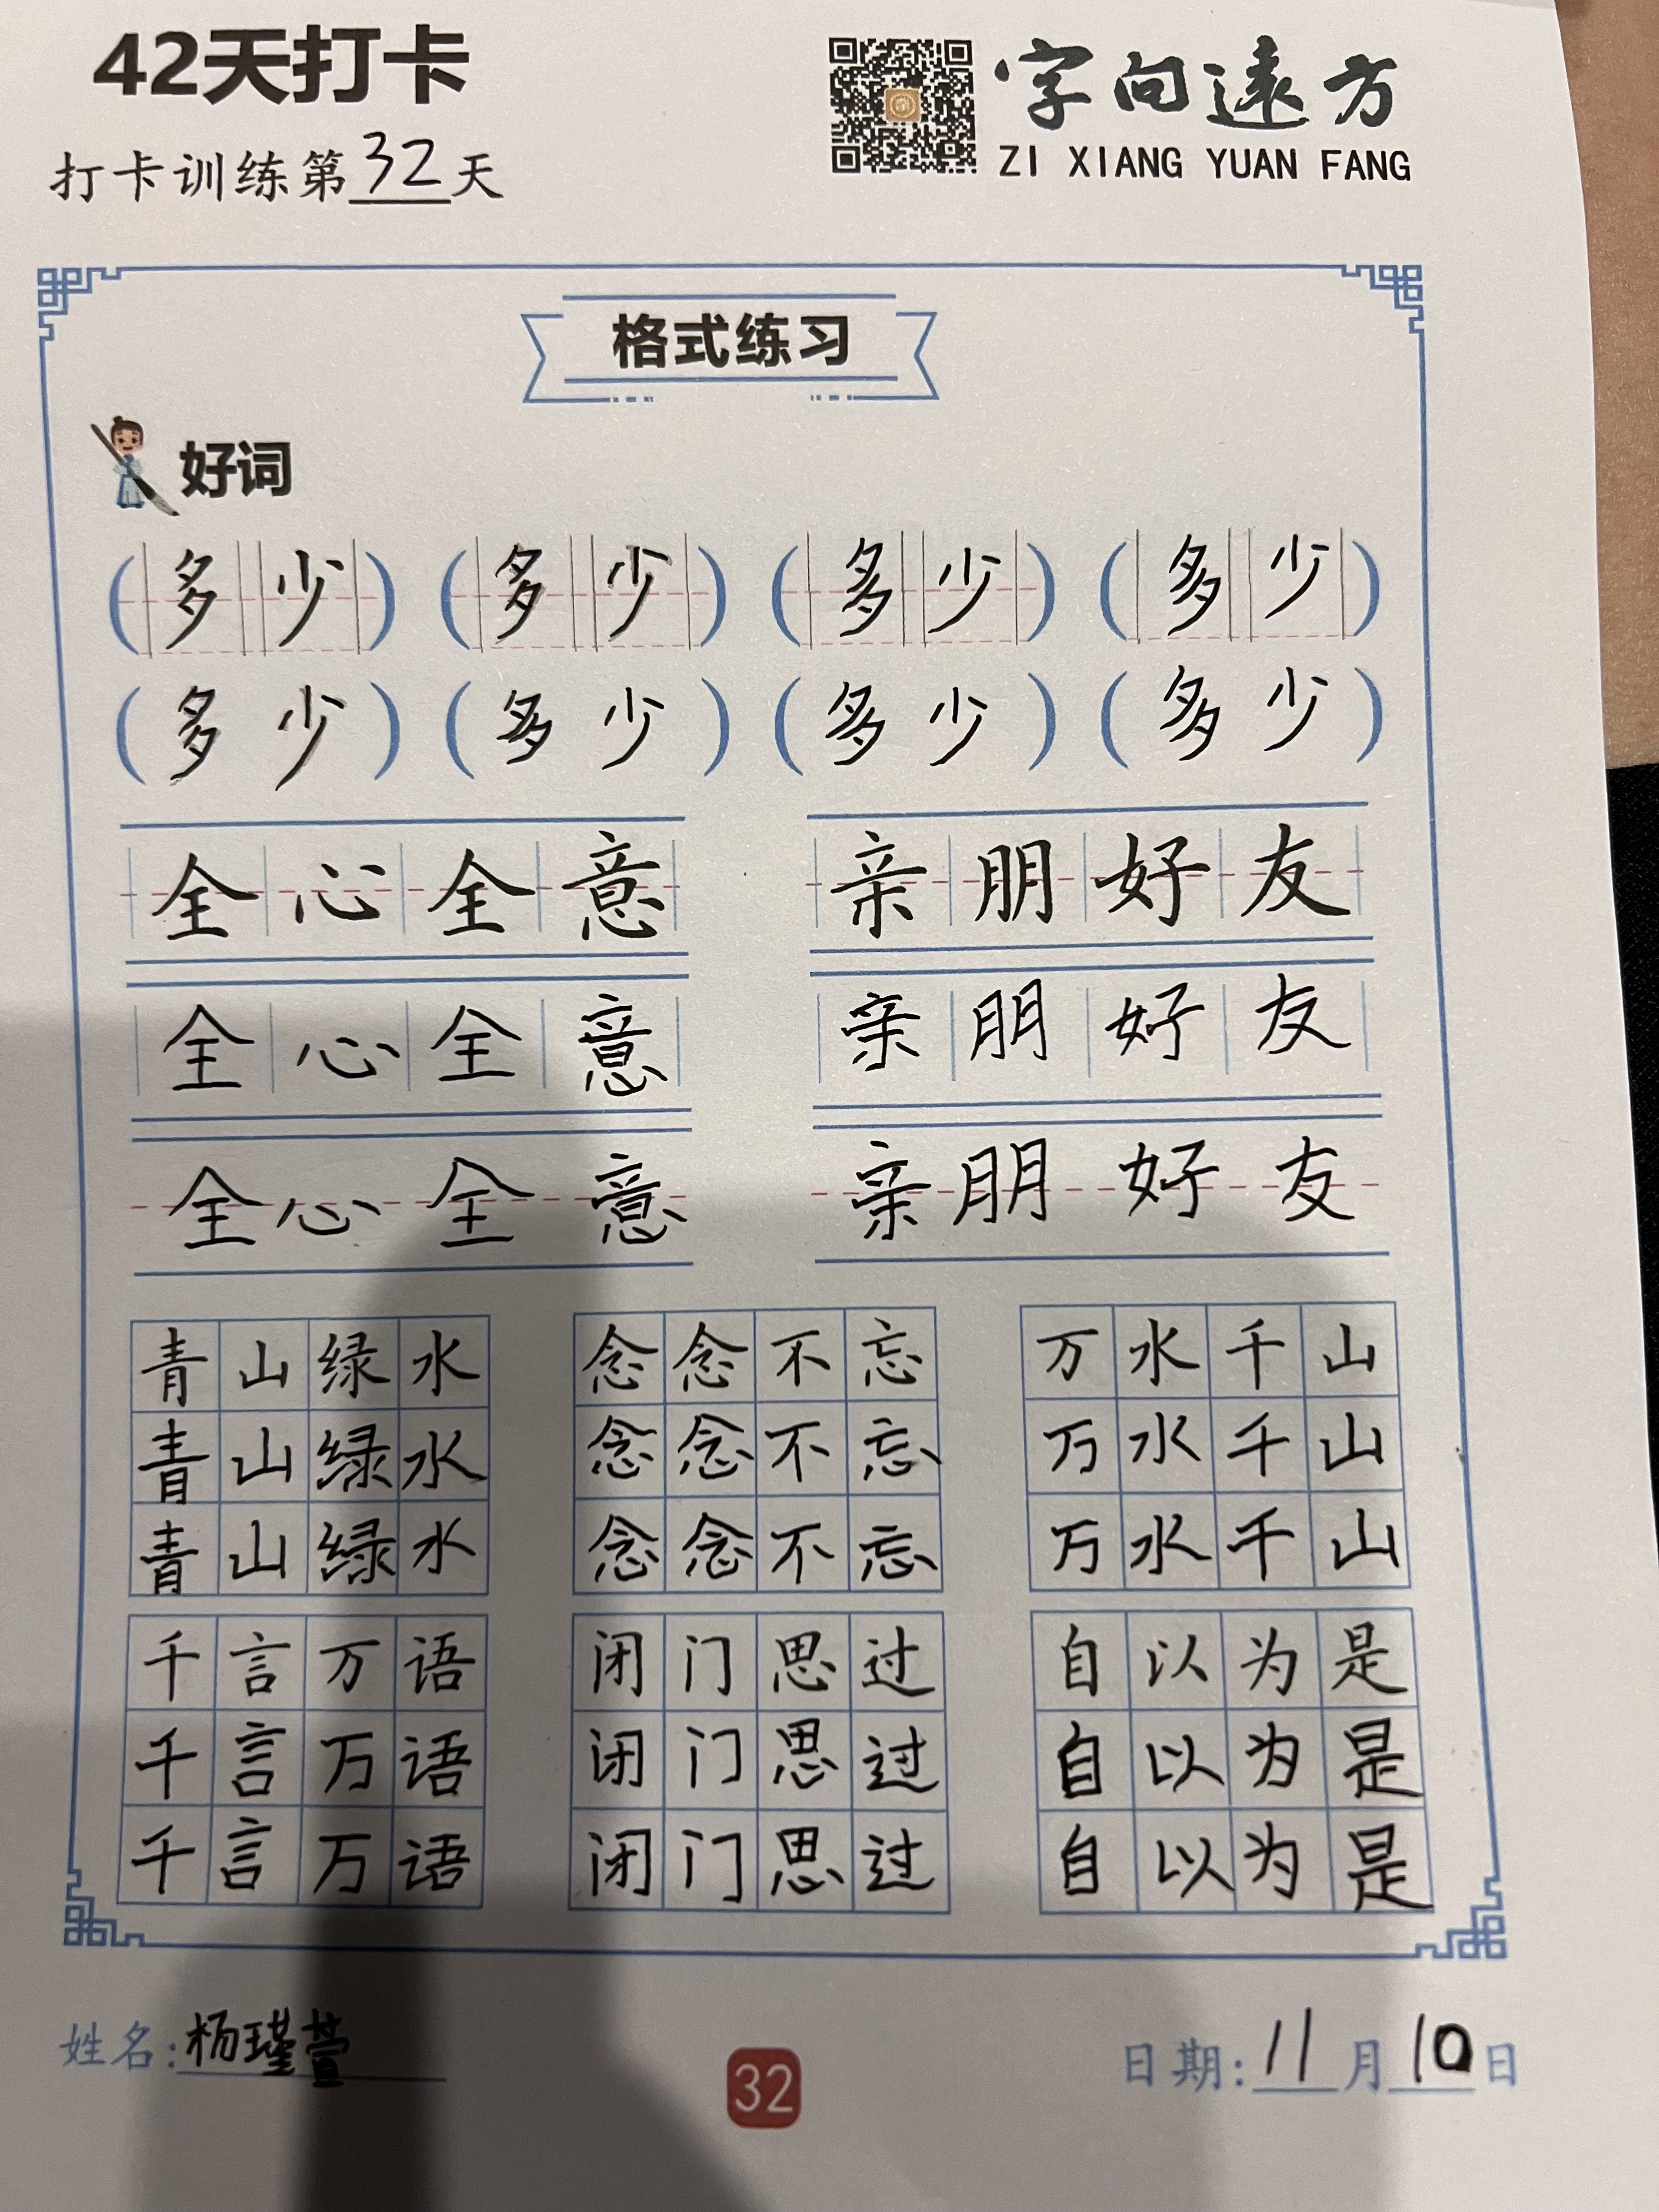 42天打卡
字向遠方
ZI XIANG YUAN FANG
打卡训练第32天
格式练习
好词
(多少) (多少) (多少) (多少)
(多少) (多少) (多少) (多少)
全心全意 亲朋好友
全心全意 亲朋好友
全心全意 亲朋好友
青山绿水 念念不忘 万水千山
青山绿水 念念不忘 万水千山
青山绿水 念念不忘 万水千山
千言万语 闭门思过 自以为是
千言万语 闭门思过 自以为是
千言万语 闭门思过 自以为是
姓名:杨瑾萱
32
日期:11月10日